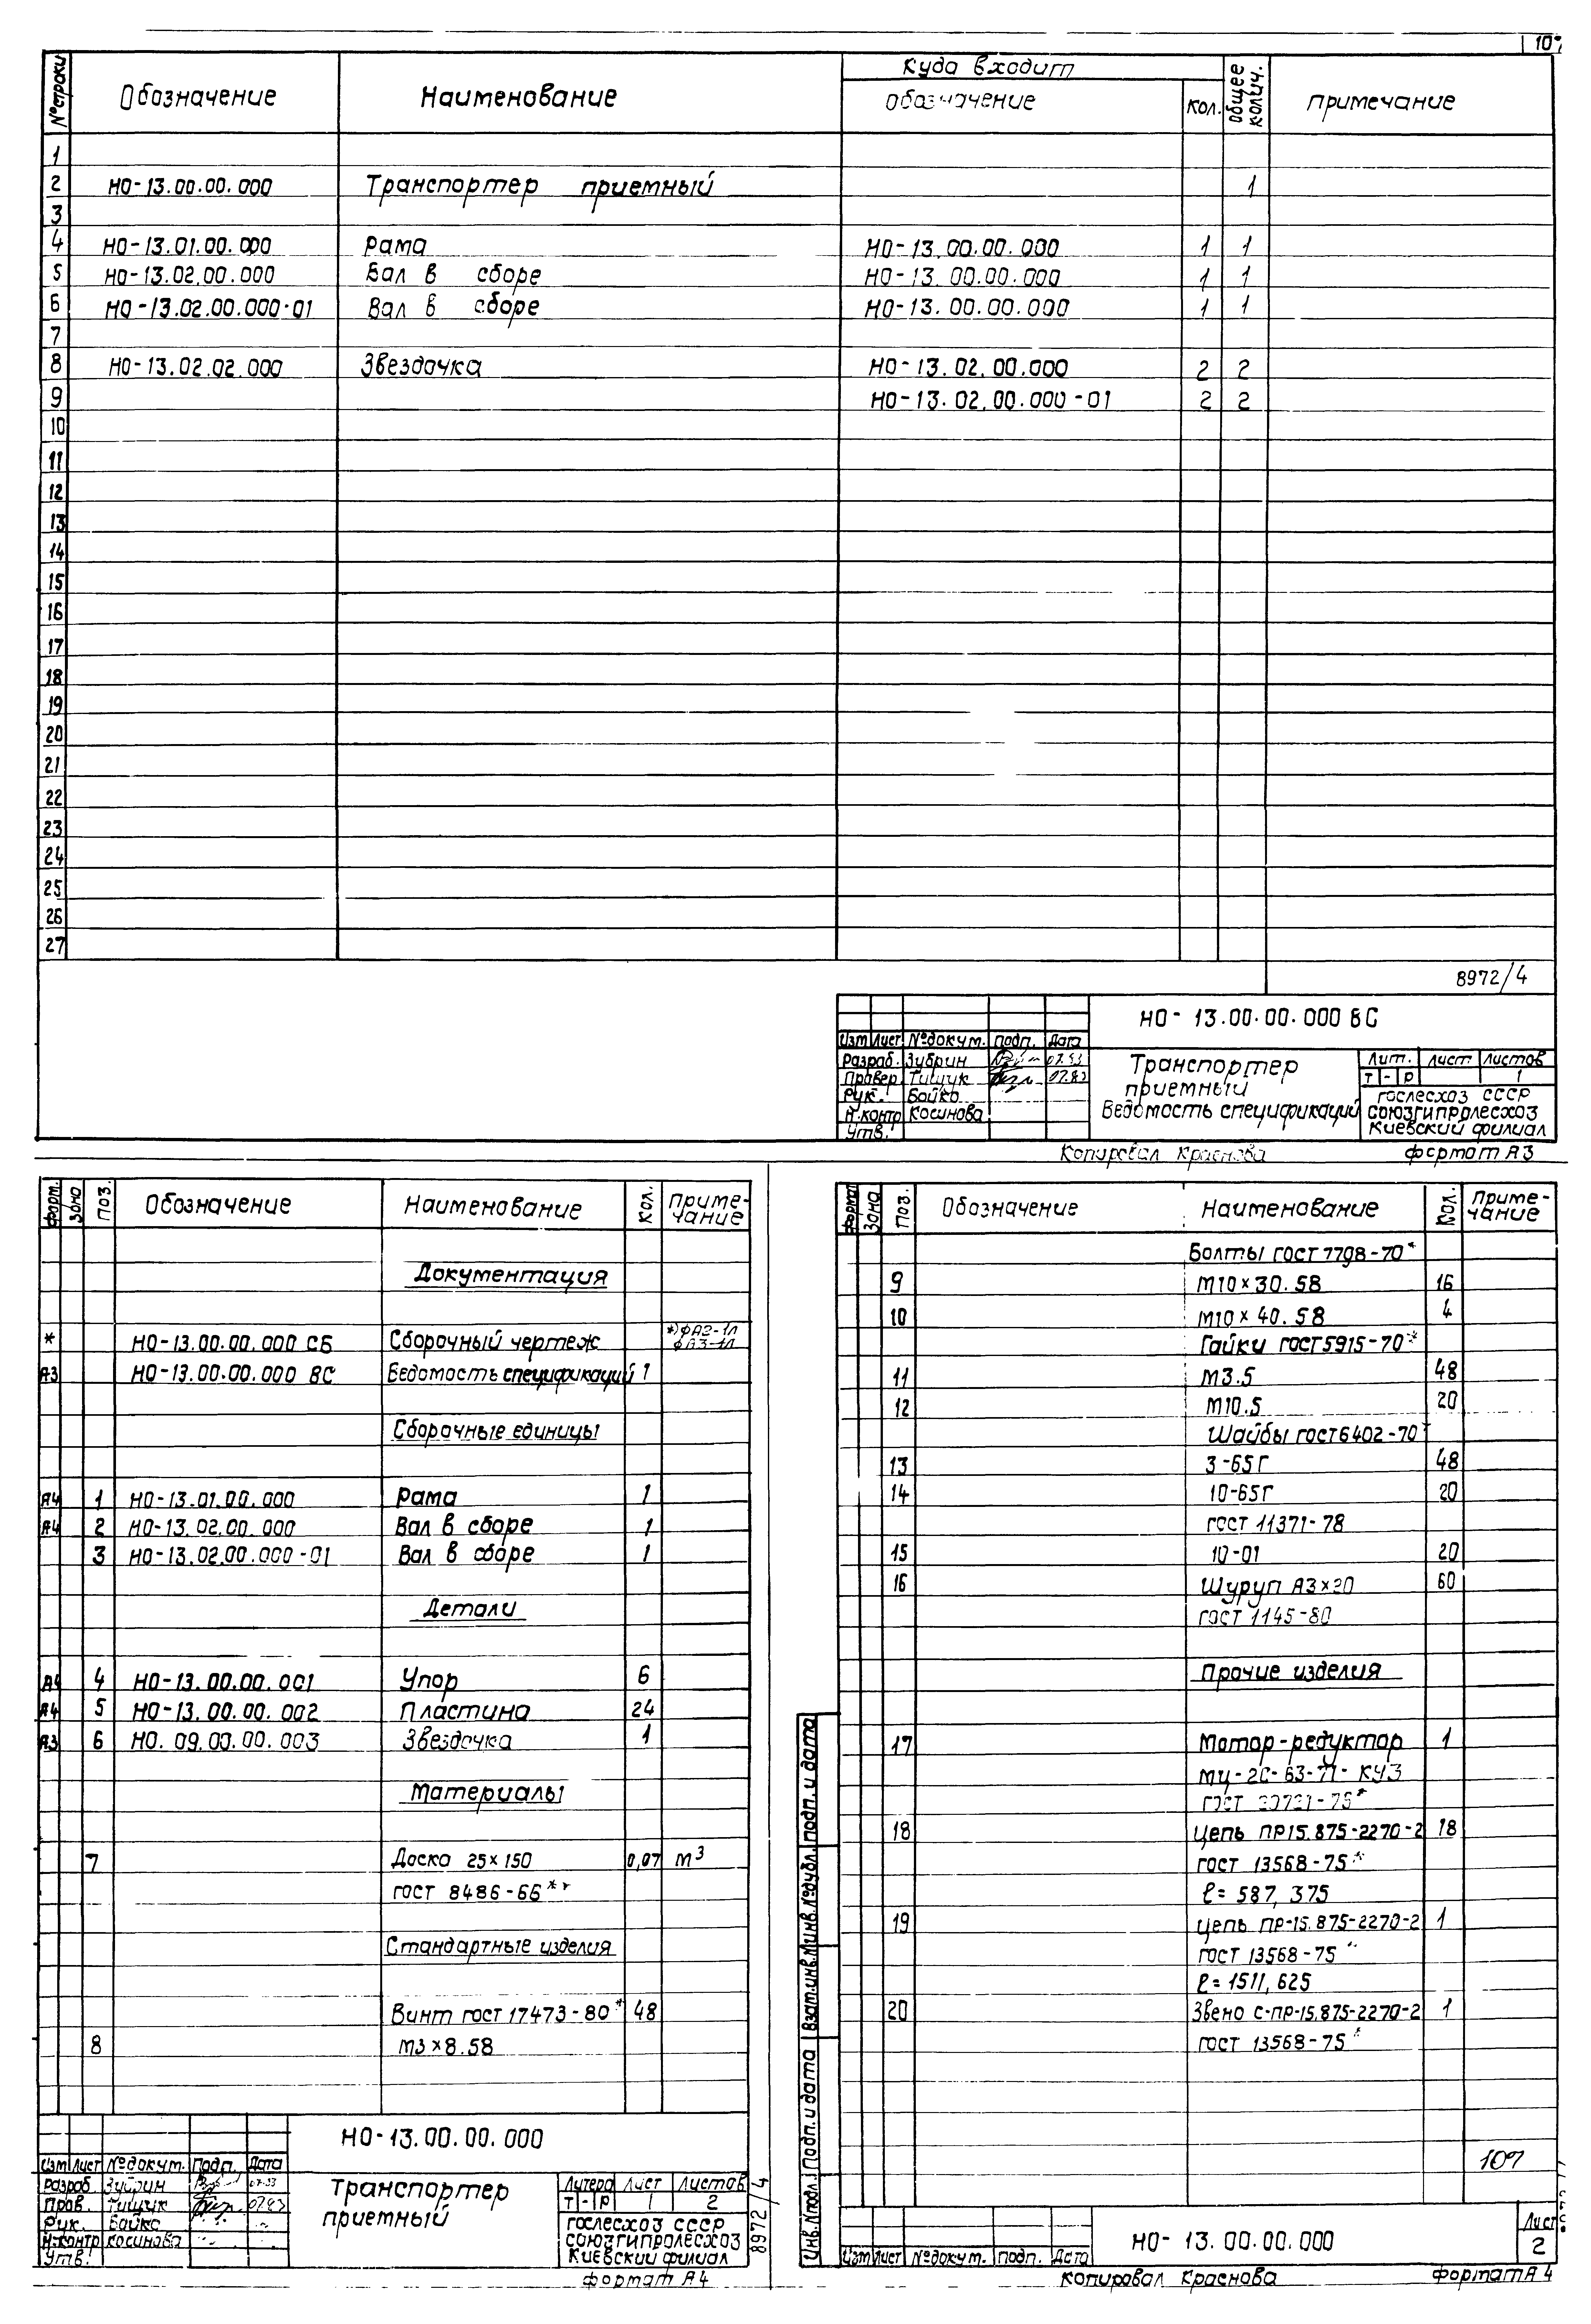 107
№ строки Обозначение Наименование Куда входит обозначение кол. общее колич. примечание
1
2 НО-13.00.00.000 Транспортер приемный 1
3
4 НО-13.01.00.000 Рама НО-13.00.00.000 1 1
5 НО-13.02.00.000 Вал в сборе НО-13.00.00.000 1 1
6 НО-13.02.00.000-01 Вал в сборе НО-13.00.00.000 1 1
7
8 НО-13.02.02.000 Звездочка НО-13.02.00.000 2 2
9 НО-13.02.00.000-01 2 2
10
11
12
13
14
15
16
17
18
19
20
21
22
23
24
25
26
27
8972/4
НО-13.00.00.000 ВС
Изм Лист №докум. подп. Дата
Разраб. Зубрин
Провер. Тищук 07.83
Рук. Бойко
Н.контр Косинова
Утв.
Транспортер
приемный
Ведомость спецификаций
Лит. лист листов
Т - Р 1
гослесхоз СССР
союзгипролесхоз
Киевский филиал
Копировал Краснова формат А3
форм. Зона Поз. Обозначение Наименование Кол. Приме-
чание
Документация
* НО-13.00.00.000 СБ Сборочный чертеж *) фА2-1л
фА3-1л
А3 НО-13.00.00.000 ВС Ведомость спецификаций 1
Сборочные единицы
А4 1 НО-13.01.00.000 Рама 1
А4 2 НО-13.02.00.000 Вал в сборе 1
3 НО-13.02.00.000-01 Вал в сборе 1
Детали
А4 4 НО-13.00.00.001 Упор 6
А4 5 НО-13.00.00.002 Пластина 24
А3 6 НО.09.00.00.003 Звездочка 1
Материалы
7 Доска 25×150 0,07 м³
гост 8486-66**
Стандартные изделия
Винт гост 17473-80* 48
8 М3×8.58
НО-13.00.00.000
Изм Лист №докум. Подп. Дата
Разраб. Зубрин
Пров. Тищук 07.83
Рук. Бойко
Н.контр Косинова
Утв.
Транспортер
приемный
Литера Лист Листов
Т - Р 1 2
гослесхоз СССР
союзгипролесхоз
Киевский филиал
8972/4
формат А4
формат Зона Поз. Обозначение Наименование Кол. Приме-
чание
Болты гост 7798-70*
9 М10×30.58 16
10 М10×40.58 4
Гайки гост 5915-70*
11 М3.5 48
12 М10.5 20
Шайбы гост 6402-70*
13 3-65Г 48
14 10-65Г 20
гост 11371-78
15 10-01 20
16 Шуруп А3×20 60
гост 1145-80
Прочие изделия
17 Мотор-редуктор 1
МЦ-2С-63-71-КУ3
гост
18 Цепь ПР15.875-2270-2 18
гост 13568-75*
ℓ=587,375
19 Цепь ПР-15.875-2270-2 1
гост 13568-75*
ℓ=1511,625
20 Звено С-ПР-15.875-2270-2 1
гост 13568-75*
Инв.№подл. Подп. и дата Взам.инв.№ инв.№дубл. подп. и дата
107
Изм Лист №докум. подп. Дата
НО-13.00.00.000
Лист
2
копировал Краснова формат А4